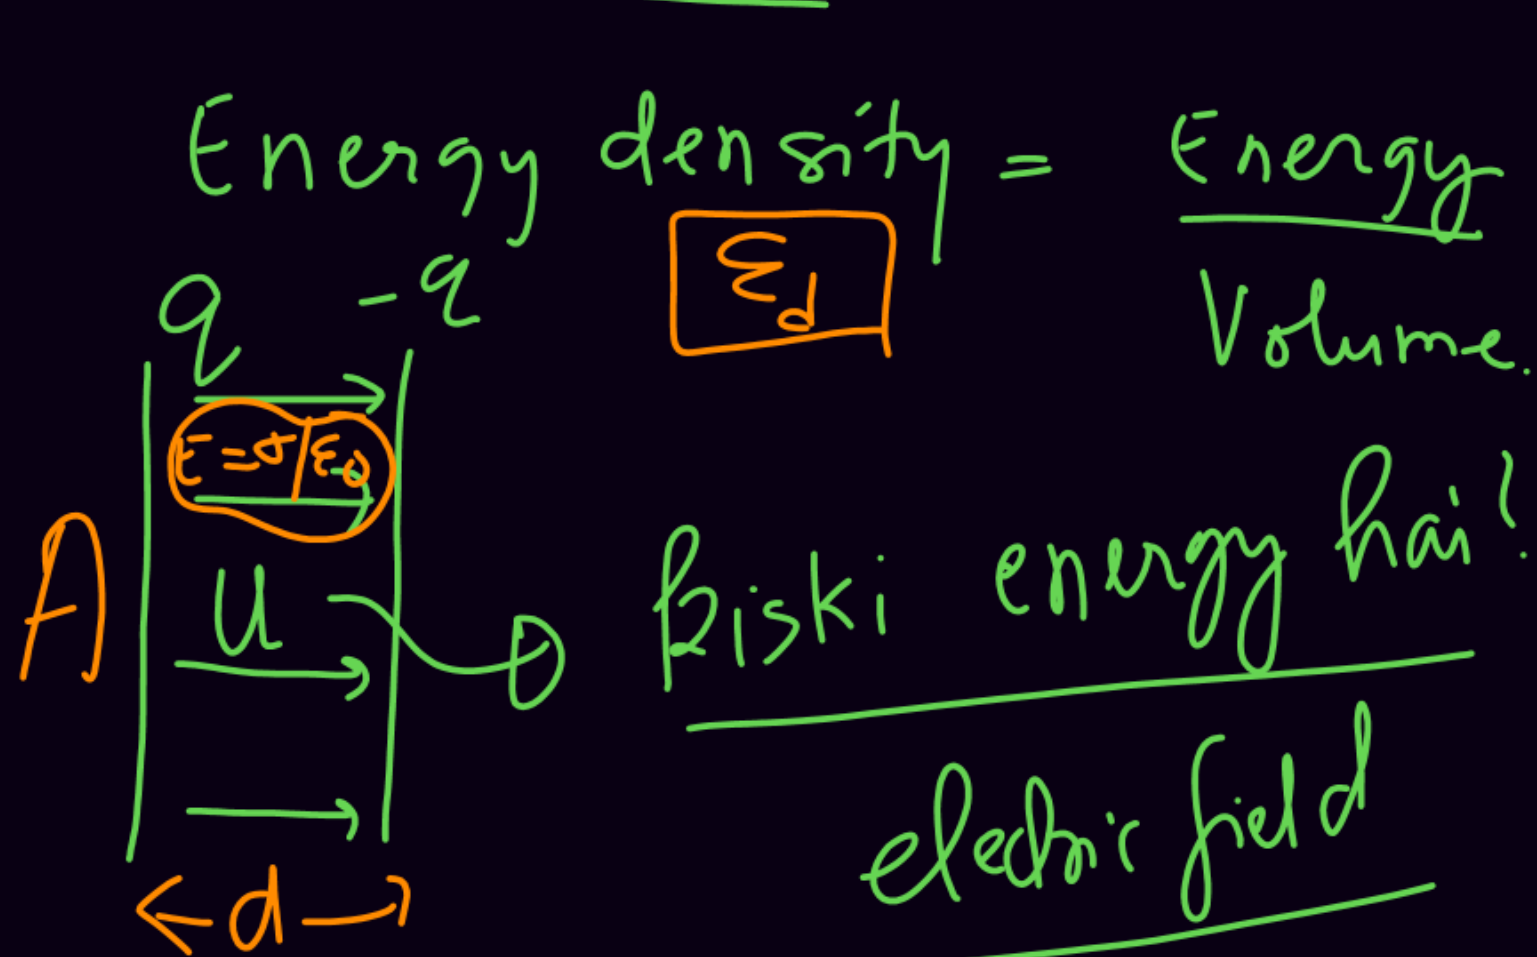 Energy density = Energy
Volume.
Ed
q -q
E = σ/ε0
A
U
kiski energy hai?
electric field
d